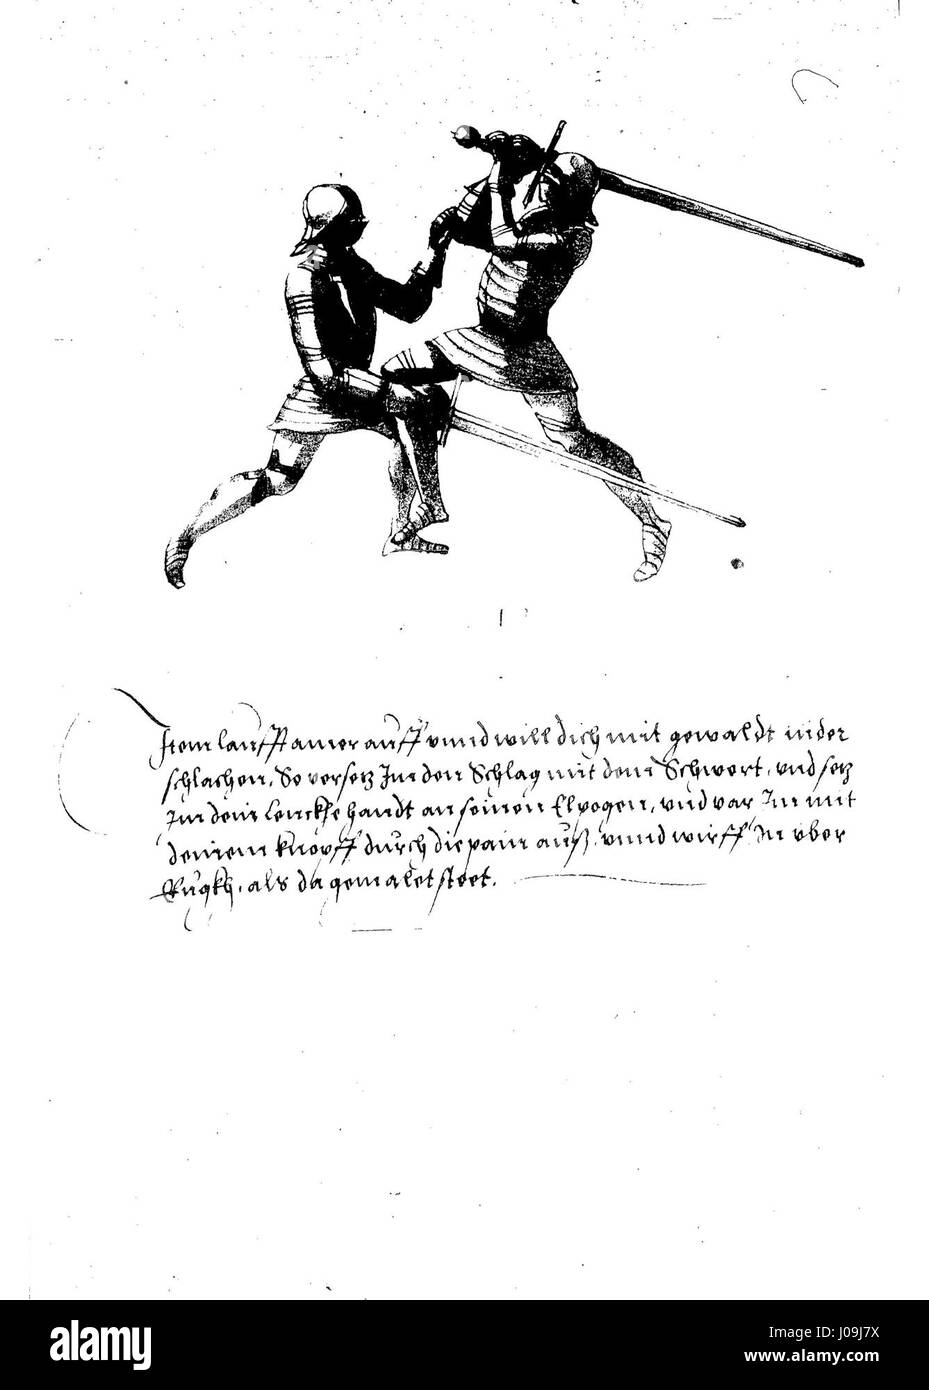 Item laufft ainer auff vnnd will dich mit gewaldt nider
schlachen, So versetz Im den Schlag mit dem Schwert, vnd setz
Im dein Lenckhe handt an seinen Elpogen, vnd var Im mit
deinem knopff durch die pain auß, vnnd wirff In vber
Rugkh, als da gemalet steet.
alamy
Image ID: J09J7X
www.alamy.com